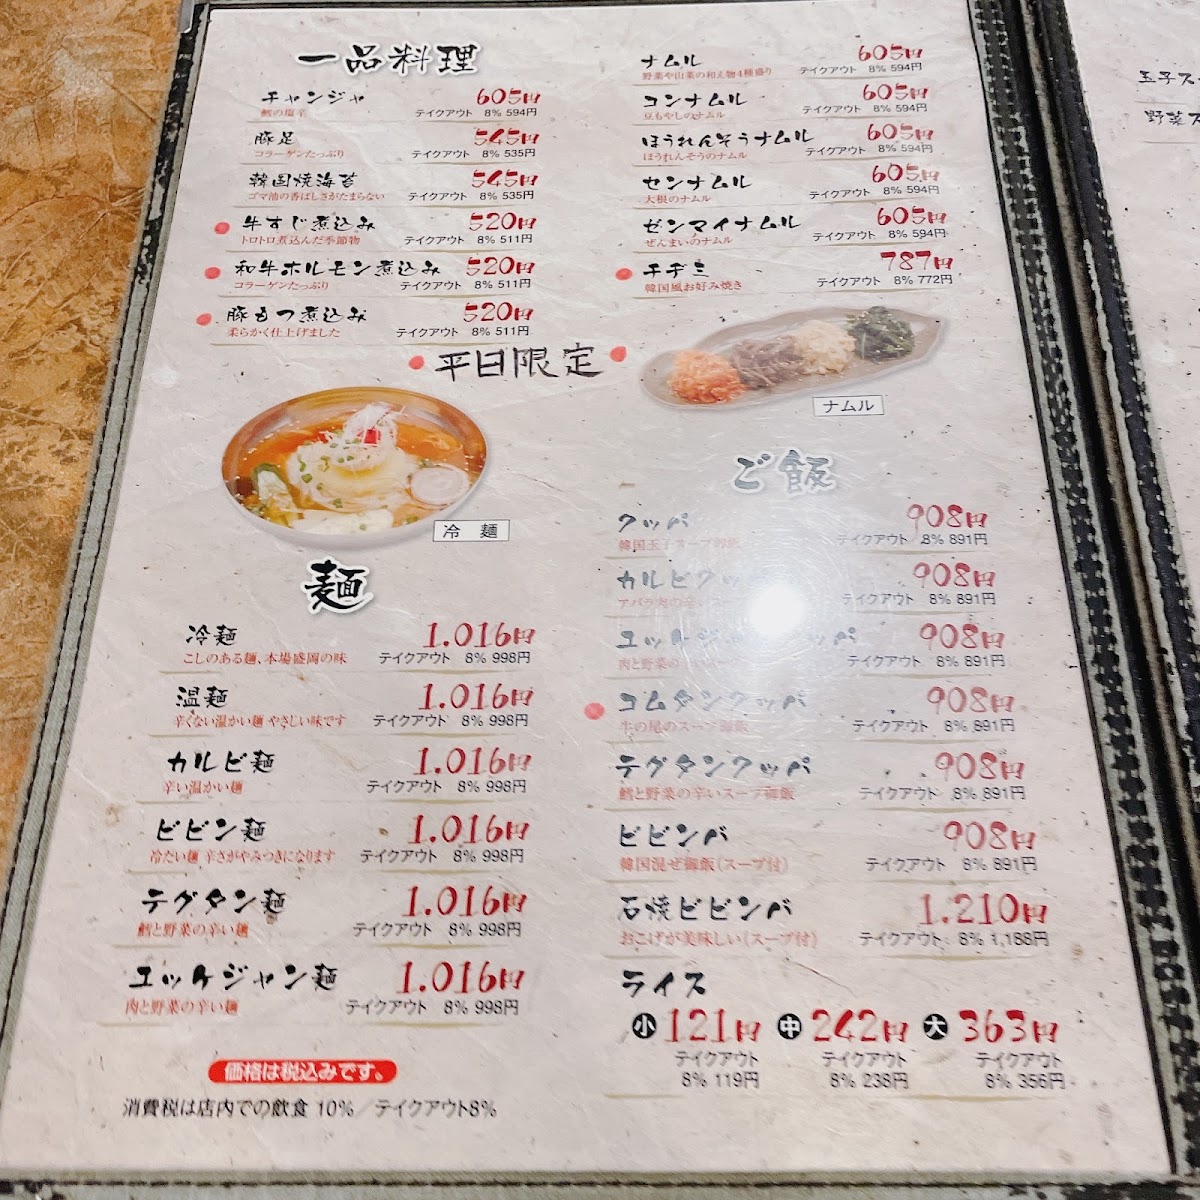 一品料理
チャンジャ 605円
鱈の塩辛 テイクアウト 8% 594円
豚足 545円
コラーゲンたっぷり テイクアウト 8% 535円
韓国焼海苔 545円
ゴマ油の香ばしさがたまらない テイクアウト 8% 535円
牛すじ煮込み 520円
トロトロ煮込んだ季節物 テイクアウト 8% 511円
和牛ホルモン煮込み 520円
コラーゲンたっぷり テイクアウト 8% 511円
豚もつ煮込み 520円
柔らかく仕上げました テイクアウト 8% 511円
平日限定
冷麺
麺
冷麺 1.016円
こしのある麺、本場盛岡の味 テイクアウト 8% 998円
温麺 1.016円
辛くない温かい麺 やさしい味です テイクアウト 8% 998円
カルビ麺 1.016円
辛い温かい麺 テイクアウト 8% 998円
ビビン麺 1.016円
冷たい麺 辛さがやみつきになります テイクアウト 8% 998円
テグタン麺 1.016円
鱈と野菜の辛い麺 テイクアウト 8% 998円
ユッケジャン麺 1.016円
肉と野菜の辛い麺 テイクアウト 8% 998円
価格は税込みです。
消費税は店内での飲食 10%/テイクアウト8%
ナムル 605円
野菜や山菜の和え物4種盛り テイクアウト 8% 594円
コンナムル 605円
豆もやしのナムル テイクアウト 8% 594円
ほうれんそうナムル 605円
ほうれんそうのナムル テイクアウト 8% 594円
センナムル 605円
大根のナムル テイクアウト 8% 594円
ゼンマイナムル 605円
ぜんまいのナムル テイクアウト 8% 594円
チヂミ 787円
韓国風お好み焼き テイクアウト 8% 772円
ナムル
ご飯
クッパ 908円
韓国玉子スープ御飯 テイクアウト 8% 891円
カルビクッ 908円
アバラ肉の辛いスー テイクアウト 8% 891円
ユッケジャンクッパ 908円
肉と野菜の テイクアウト 8% 891円
コムタンクッパ 908円
牛の尾のスープ御飯 テイクアウト 8% 891円
テグタンクッパ 908円
鱈と野菜の辛いスープ御飯 テイクアウト 8% 891円
ビビンバ 908円
韓国混ぜ御飯(スープ付) テイクアウト 8% 891円
石焼ビビンバ 1.210円
おこげが美味しい(スープ付) テイクアウト 8% 1,188円
ライス
小 121円 中 242円 大 363円
テイクアウト テイクアウト テイクアウト
8% 119円 8% 238円 8% 356円
玉子ス
野菜ス